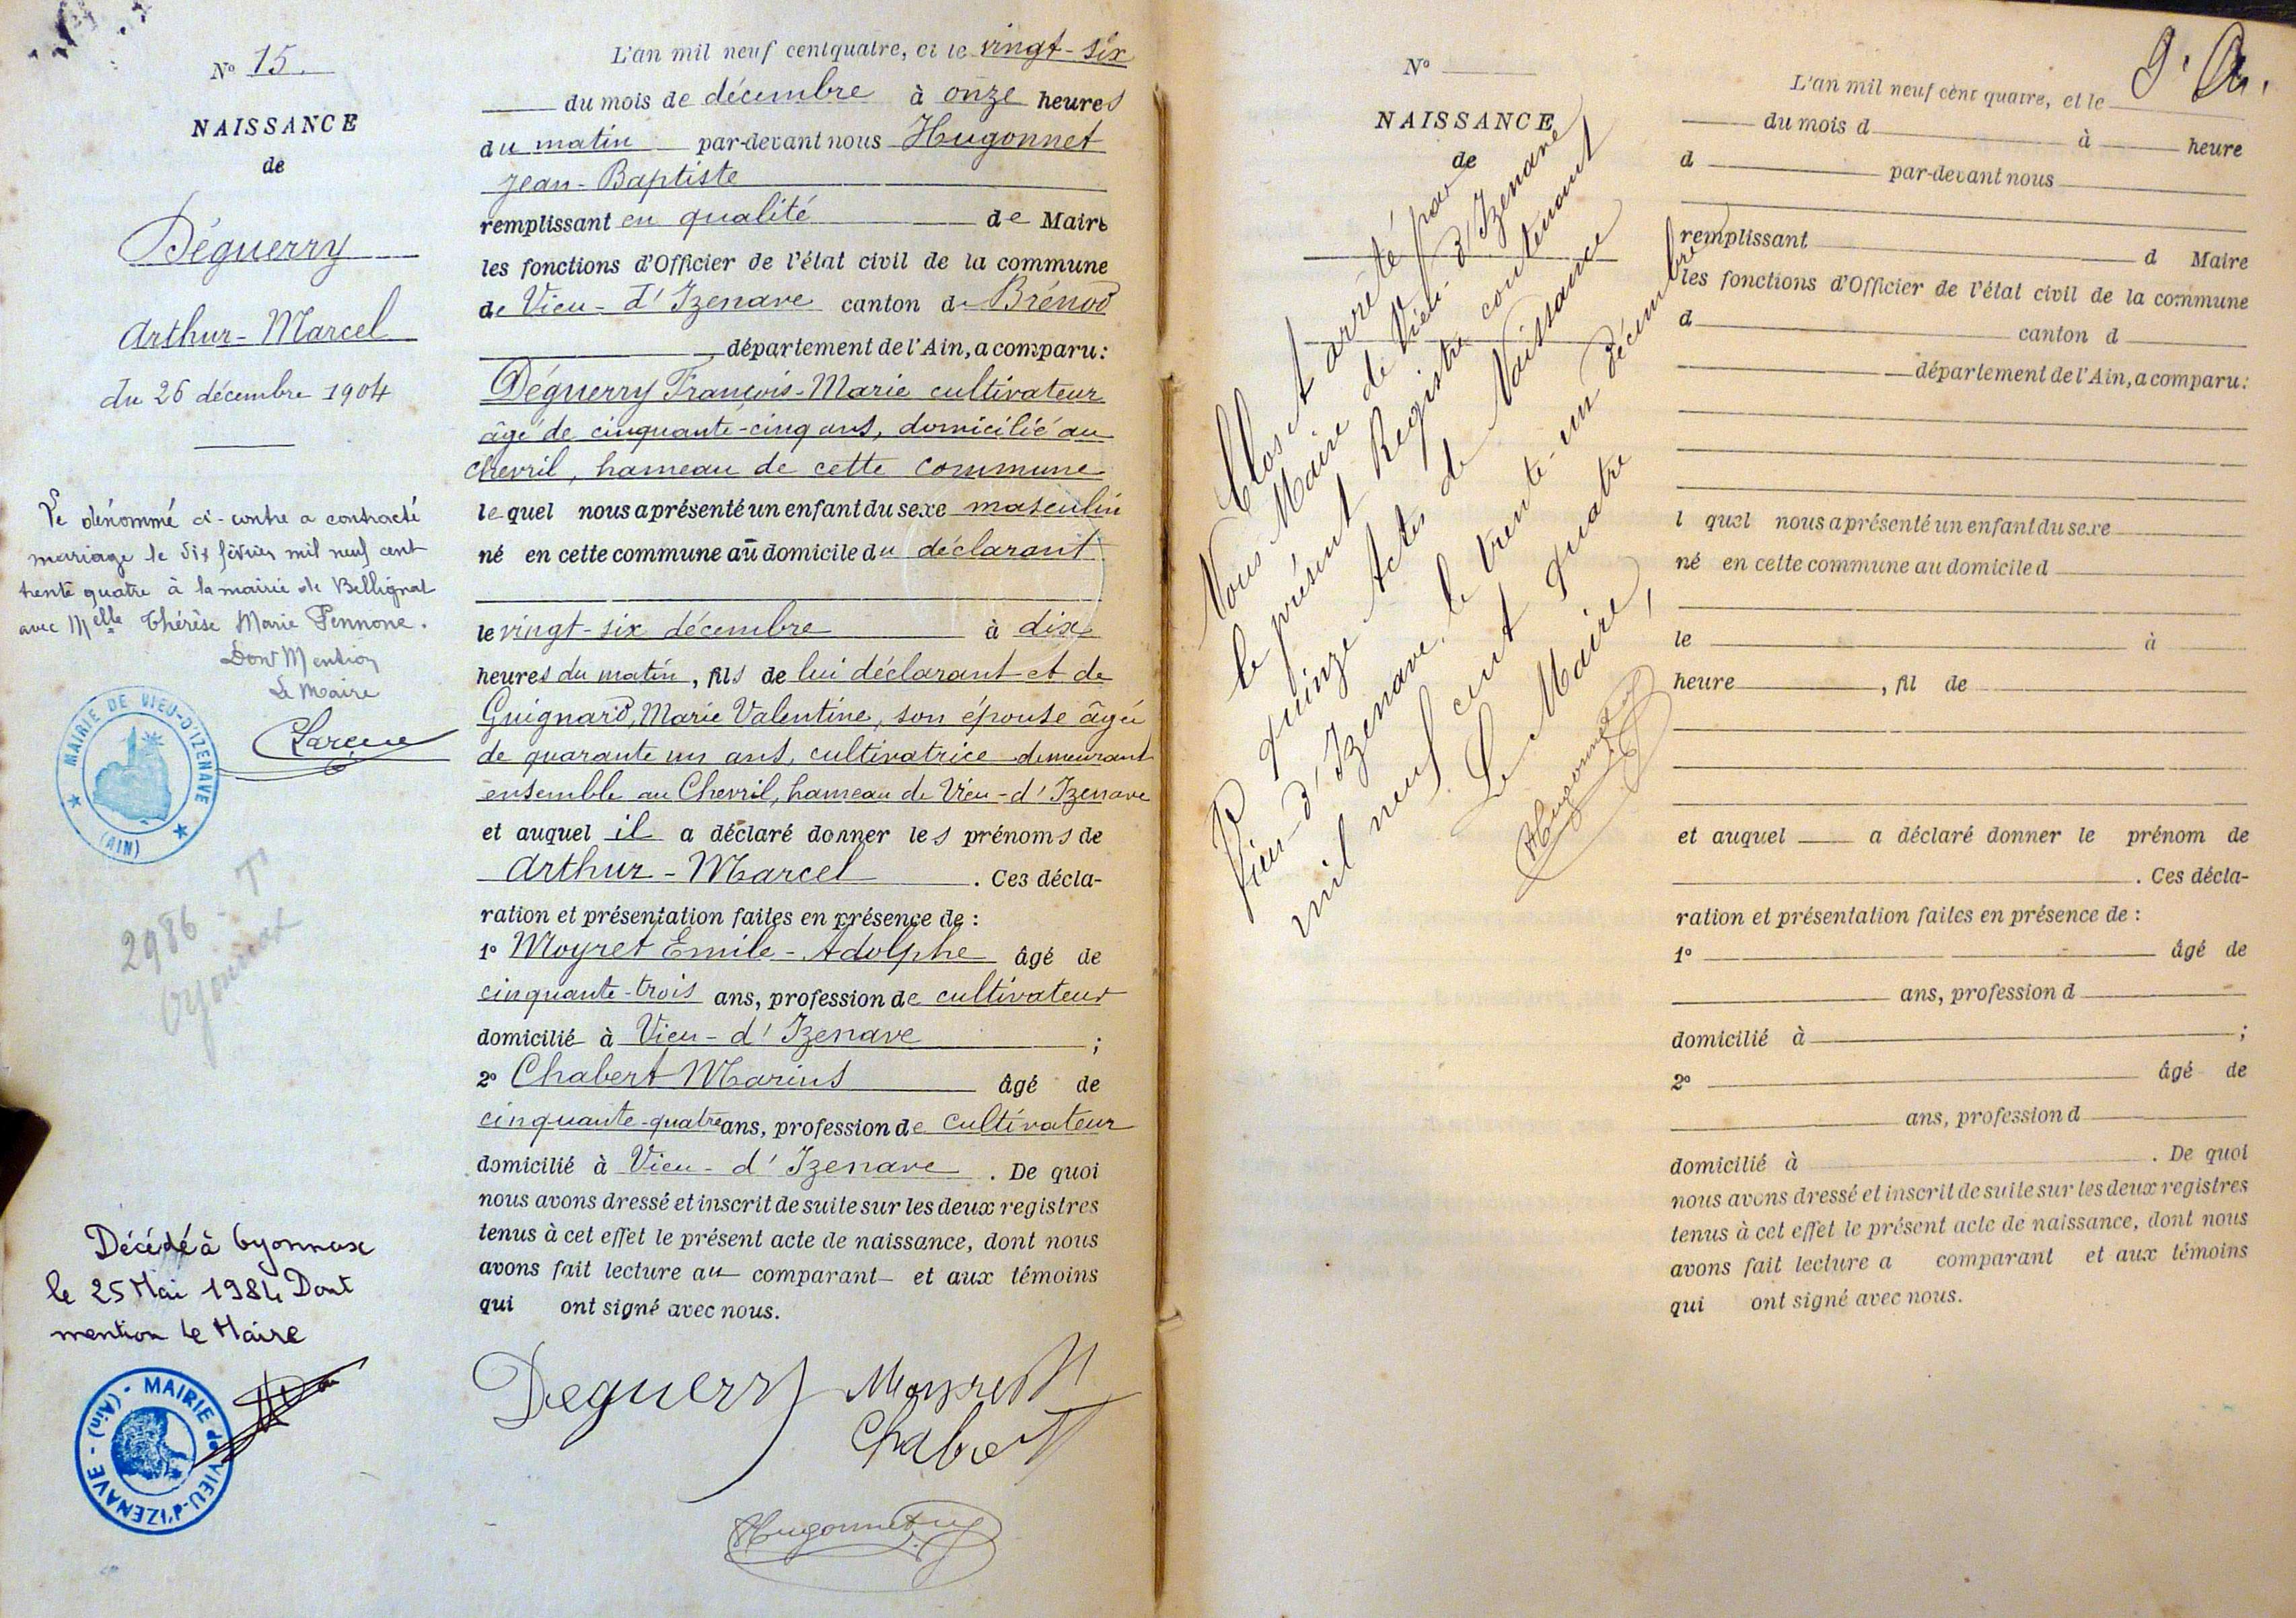 N° 15.
NAISSANCE
de
Déguerry
Arthur-Marcel
du 26 décembre 1904
Le dénommé ci-contre a contracté
mariage le dix février mil neuf cent
trente quatre à la mairie de Bellignat
avec Melle Thérèse Marie Pennone.
Dont Mention
Le Maire
MAIRIE DE VIEU-D'IZENAVE
(AIN)
2986 -
Oyonnax
Décédé à Oyonnax
le 25 Mai 1984 Dont
mention le Maire
MAIRIE de VIEU-d'IZENAVE - (Ain) -
L'an mil neuf cent quatre, et le vingt-six
du mois de décembre à onze heures
du matin par-devant nous Hugonnet
Jean-Baptiste
remplissant en qualité de Maire
les fonctions d'Officier de l'état civil de la commune
de Vieu-d'Izenave canton de Brénod
département de l'Ain, a comparu :
Déguerry François-Marie cultivateur
âgé de cinquante-cinq ans, domicilié au
Chevril, hameau de cette commune
lequel nous a présenté un enfant du sexe masculin
né en cette commune au domicile du déclarant
le vingt-six décembre à dix
heures du matin, fils de lui déclarant et de
Guignard, Marie Valentine, son épouse âgée
de quarante un ans, cultivatrice demeurant
ensemble au Chevril, hameau de Vieu-d'Izenave
et auquel il a déclaré donner les prénoms de
Arthur-Marcel . Ces décla-
ration et présentation faites en présence de :
1° Moyret Emile-Adolphe âgé de
cinquante-trois ans, profession de cultivateur
domicilié à Vieu-d'Izenave ;
2° Chabert Marius âgé de
cinquante-quatre ans, profession de cultivateur
domicilié à Vieu-d'Izenave . De quoi
nous avons dressé et inscrit de suite sur les deux registres
tenus à cet effet le présent acte de naissance, dont nous
avons fait lecture au comparant et aux témoins
qui ont signé avec nous.
Deguerry Moyret
Chabert
Hugonnet
N°
NAISSANCE
de
Clos et arrêté par
Nous Maire de Vieu-d'Izenave
le présent Registre contenant
quinze Actes de Naissance
Vieu-d'Izenave, le trente-un décembre
mil neuf cent quatre
Le Maire,
Hugonnet
L'an mil neuf cent quatre, et le
du mois d à heure
d par-devant nous
remplissant d Maire
les fonctions d'Officier de l'état civil de la commune
d canton d
département de l'Ain, a comparu :
l quel nous a présenté un enfant du sexe
né en cette commune au domicile d
le à
heure , fil de
et auquel a déclaré donner le prénom de
. Ces décla-
ration et présentation faites en présence de :
1° âgé de
ans, profession d
domicilié à ;
2° âgé de
ans, profession d
domicilié à . De quoi
nous avons dressé et inscrit de suite sur les deux registres
tenus à cet effet le présent acte de naissance, dont nous
avons fait lecture a comparant et aux témoins
qui ont signé avec nous.